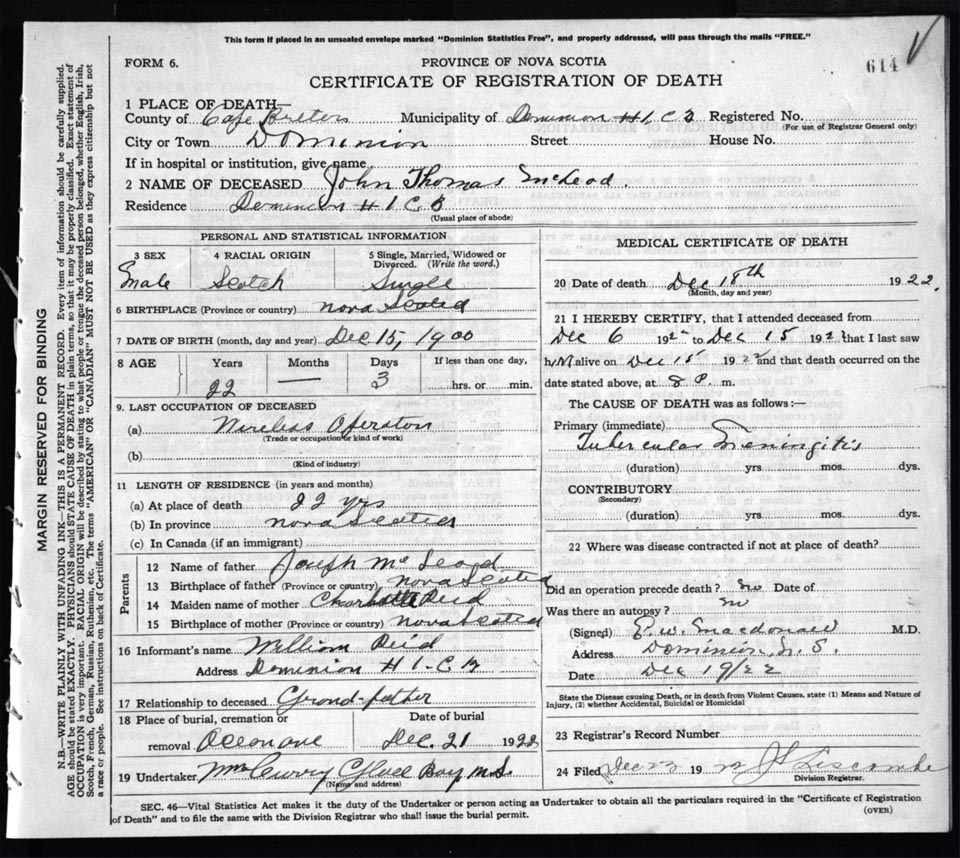 This form if placed in an unsealed envelope marked "Dominion Statistics Free", and properly addressed, will pass through the mails "FREE."
FORM 6.
PROVINCE OF NOVA SCOTIA
614
CERTIFICATE OF REGISTRATION OF DEATH
1 PLACE OF DEATH—
County of Cape Breton Municipality of Dominion # 1 C B Registered No.
(For use of Registrar General only)
City or Town Dominion Street House No.
If in hospital or institution, give name
2 NAME OF DECEASED John Thomas McLeod.
Residence Dominion # 1 C. B
(Usual place of abode)
PERSONAL AND STATISTICAL INFORMATION
3 SEX 4 RACIAL ORIGIN 5 Single, Married, Widowed or Divorced. (Write the word.)
Male Scotch Single
6 BIRTHPLACE (Province or country) Nova Scotia
7 DATE OF BIRTH (month, day and year) Dec 15, 1900
8 AGE Years Months Days If less than one day,
22 — 3 hrs. or min.
9. LAST OCCUPATION OF DECEASED
(a) Wireless Operator
(Trade or occupation or kind of work)
(b)
(Kind of industry)
11 LENGTH OF RESIDENCE (in years and months)
(a) At place of death 22 yrs
(b) In province Nova Scotia
(c) In Canada (if an immigrant)
Parents
12 Name of father Joseph McLeod
13 Birthplace of father (Province or country) Nova Scotia
14 Maiden name of mother Charlotte Reid
15 Birthplace of mother (Province or country) Nova Scotia
16 Informant's name William Reid
Address Dominion # 1 - C. B
17 Relationship to deceased Grond-father
18 Place of burial, cremation or Date of burial
removal Oceonave Dec. 21 1922
19 Undertaker McCurry Glace Bay N.S.
(Name and address)
MEDICAL CERTIFICATE OF DEATH
20 Date of death Dec 18th 1922.
(Month, day and year)
21 I HEREBY CERTIFY, that I attended deceased from
Dec 6 192 to Dec 15 192 that I last saw
him alive on Dec 15 1922 and that death occurred on the
date stated above, at 8 P. m.
The CAUSE OF DEATH was as follows:—
Primary (immediate)
Tubercular Meningitis
(duration) yrs. mos. dys.
CONTRIBUTORY
(Secondary)
(duration) yrs. mos. dys.
22 Where was disease contracted if not at place of death?
Did an operation precede death? no Date of
Was there an autopsy? no
(Signed) E. W. Macdonald M.D.
Address Dominion N. S.
Date Dec 19/22
State the Disease causing Death, or in death from Violent Causes, state (1) Means and Nature of
Injury, (2) whether Accidental, Suicidal or Homicidal
23 Registrar's Record Number
24 Filed Dec 19 J Liscombe
Division Registrar.
SEC. 46—Vital Statistics Act makes it the duty of the Undertaker or person acting as Undertaker to obtain all the particulars required in the "Certificate of Registration
of Death" and to file the same with the Division Registrar who shall issue the burial permit.
(OVER)
MARGIN RESERVED FOR BINDING
N.B.—WRITE PLAINLY WITH UNFADING INK—THIS IS A PERMANENT RECORD. Every item of information should be carefully supplied.
AGE should be stated EXACTLY. PHYSICIANS should STATE CAUSE OF DEATH in plain terms, so that it may be properly classified. Exact statement of
OCCUPATION is very important. RACIAL ORIGIN will be described by stating to what people or tongue the deceased person belonged, whether English, Irish,
Scotch, French, German, Russian, Ruthenian, etc. The terms "AMERICAN" OR "CANADIAN" MUST NOT BE USED as they express citizenship but not
a race or people. See instructions on back of Certificate.